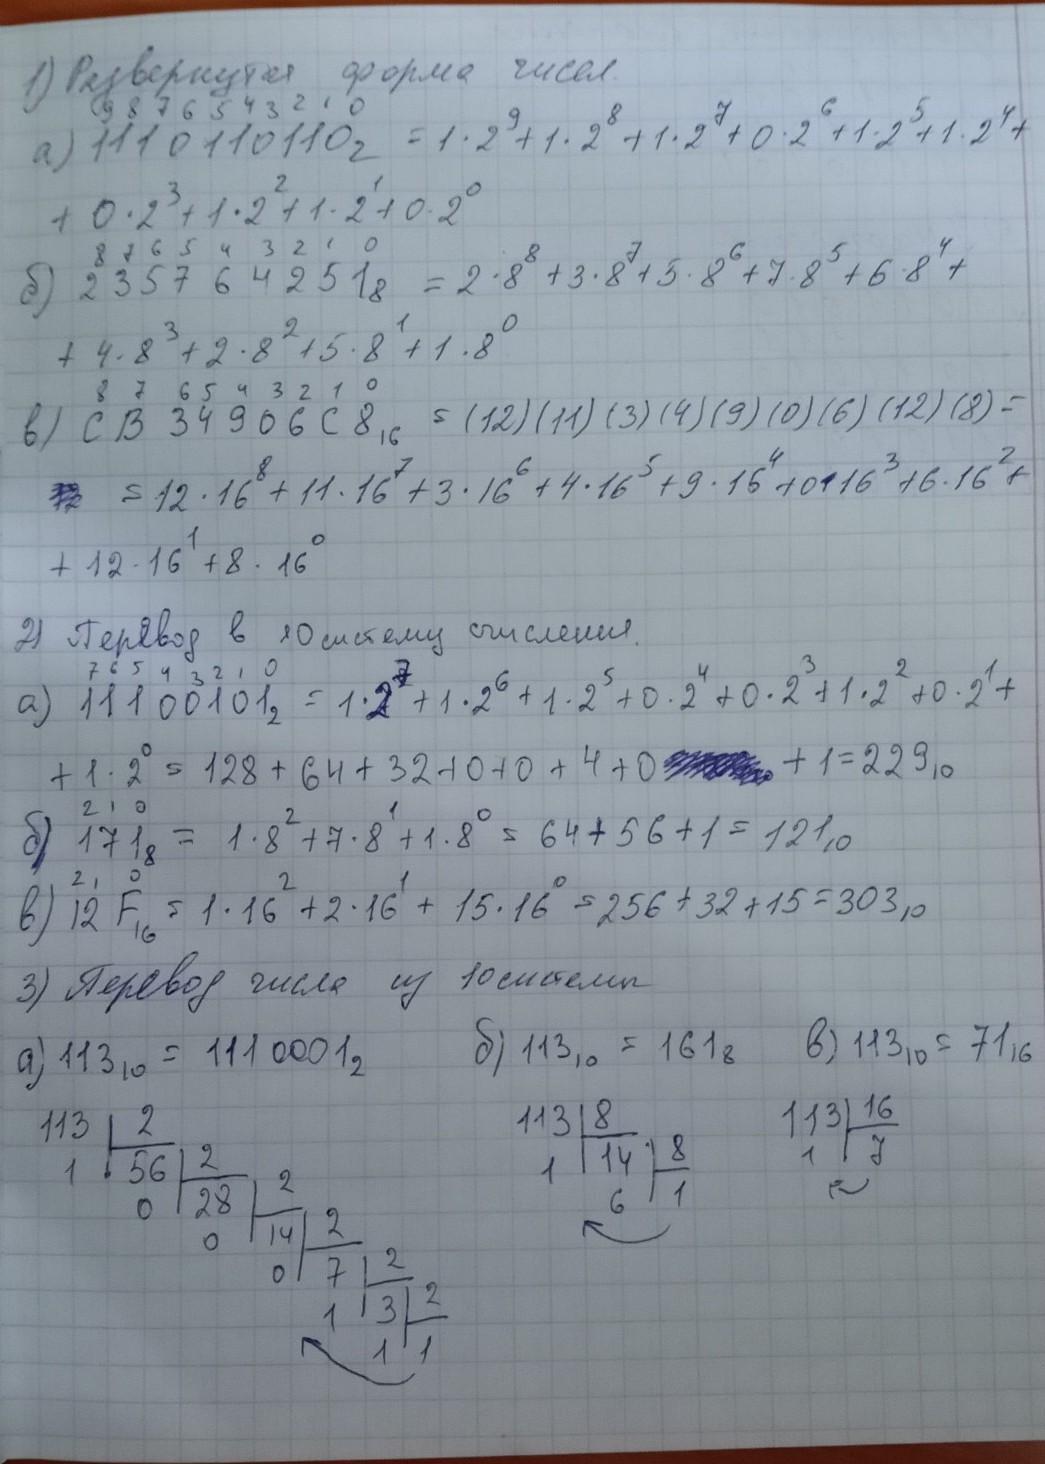 1) Развернутая форма чисел.
9 8 7 6 5 4 3 2 1 0
а) 1110110110₂ = 1·2⁹+1·2⁸+1·2⁷+0·2⁶+1·2⁵+1·2⁴+
+ 0·2³+1·2²+1·2¹+0·2⁰
8 7 6 5 4 3 2 1 0
б) 235764251₈ = 2·8⁸+3·8⁷+5·8⁶+7·8⁵+6·8⁴+
+ 4·8³+2·8²+5·8¹+1·8⁰
8 7 6 5 4 3 2 1 0
в) СВ34906С8₁₆ = (12)(11)(3)(4)(9)(0)(6)(12)(8)=
= 12·16⁸+11·16⁷+3·16⁶+4·16⁵+9·16⁴+0·16³+6·16²+
+ 12·16¹+8·16⁰
2) Перевод в 10 систему счисления.
7 6 5 4 3 2 1 0
а) 11100101₂ = 1·2⁷+1·2⁶+1·2⁵+0·2⁴+0·2³+1·2²+0·2¹+
+1·2⁰ = 128+64+32+0+0+4+0 +1=229₁₀
2 1 0
б) 171₈ = 1·8²+7·8¹+1·8⁰ = 64+56+1= 121₁₀
2 1 0
в) 12F₁₆ = 1·16²+2·16¹+ 15·16⁰ =256+32+15=303₁₀
3) Перевод числа из 10 системы
а) 113₁₀ = 1110001₂ б) 113₁₀ = 161₈ в) 113₁₀= 71₁₆
113 2 113 8 113 16
1 56 2 1 14 8 1 7
0 28 2 6 1
0 14 2
0 7 2
1 3 2
1 1